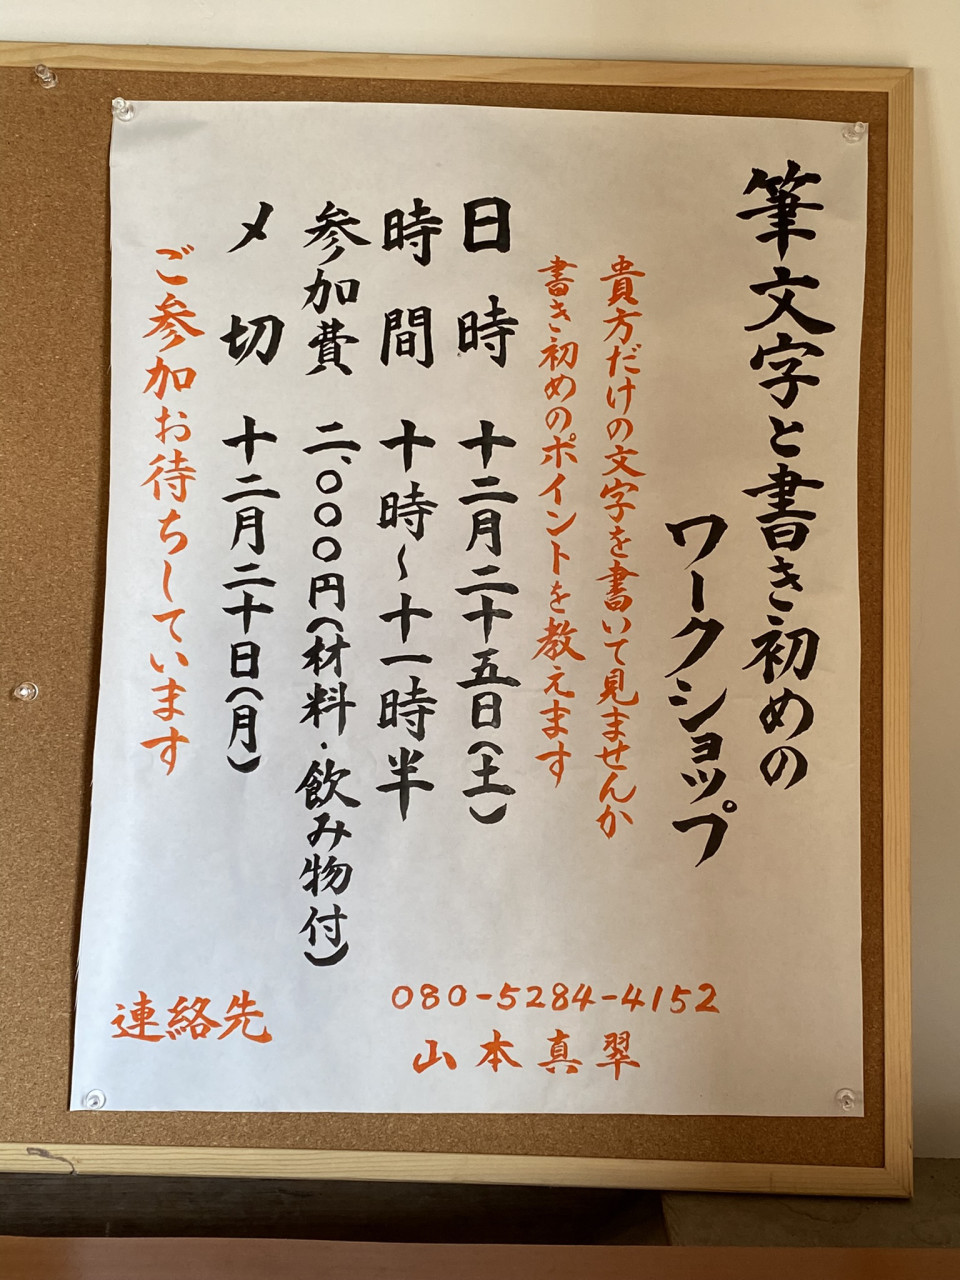 筆文字と書き初めの
ワークショップ
貴方だけの文字を書いて見ませんか
書き初めのポイントを教えます
日時 十二月二十五日(土)
時間 十時~十一時半
参加費 二、〇〇〇円(材料・飲み物付)
〆切 十二月二十日(月)
ご参加お待ちしています
連絡先
080-5284-4152
山本真翠